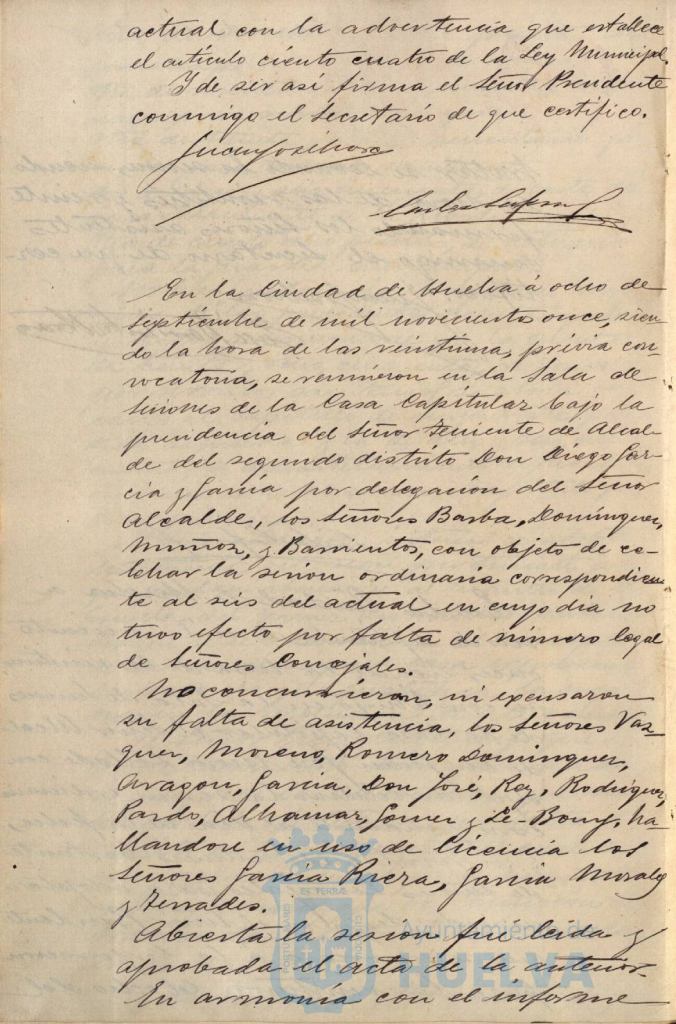 actual con la advertencia que establece
el artículo ciento cuatro de la Ley Municipal.
Y de ser así firma el Señor Presidente
conmigo el Secretario de que certifico.
En la Ciudad de Huelva á ocho de
Septiembre de mil noveciento once, sien-
do la hora de las veintiuna, prévia con-
vocatoria, se reunieron en la Sala de
Sesiones de la Casa Capitular bajo la
presidencia del Señor Teniente de Alcal-
de del segundo distrito Don Diego Gar-
cia y García por delegación del Señor
Alcalde, los Señores Barba, Dominguez,
Muñoz, y Barrientos, con objeto de ce-
lebrar la sesion ordinaria correspondien-
te al seis del actual en cuyo dia no
tuvo efecto por falta de número legal
de Señores Concejales.
No concurrieron, ni excusaron
su falta de asistencia, los Señores Vaz-
quez, Moreno, Romero Dominguez,
Aragon, Garcia, Don José, Rey, Rodriguez,
Pardo, Alhamar, Gomez y Le-Bourg, ha-
llandose en uso de licencia los
Señores Garcia Riera, Garcia Morales
y Terrades.
Abierta la sesion fué leida y
aprobada el acta de la anterior.
En armonía con el informe
Ayuntamiento de
HUELVA